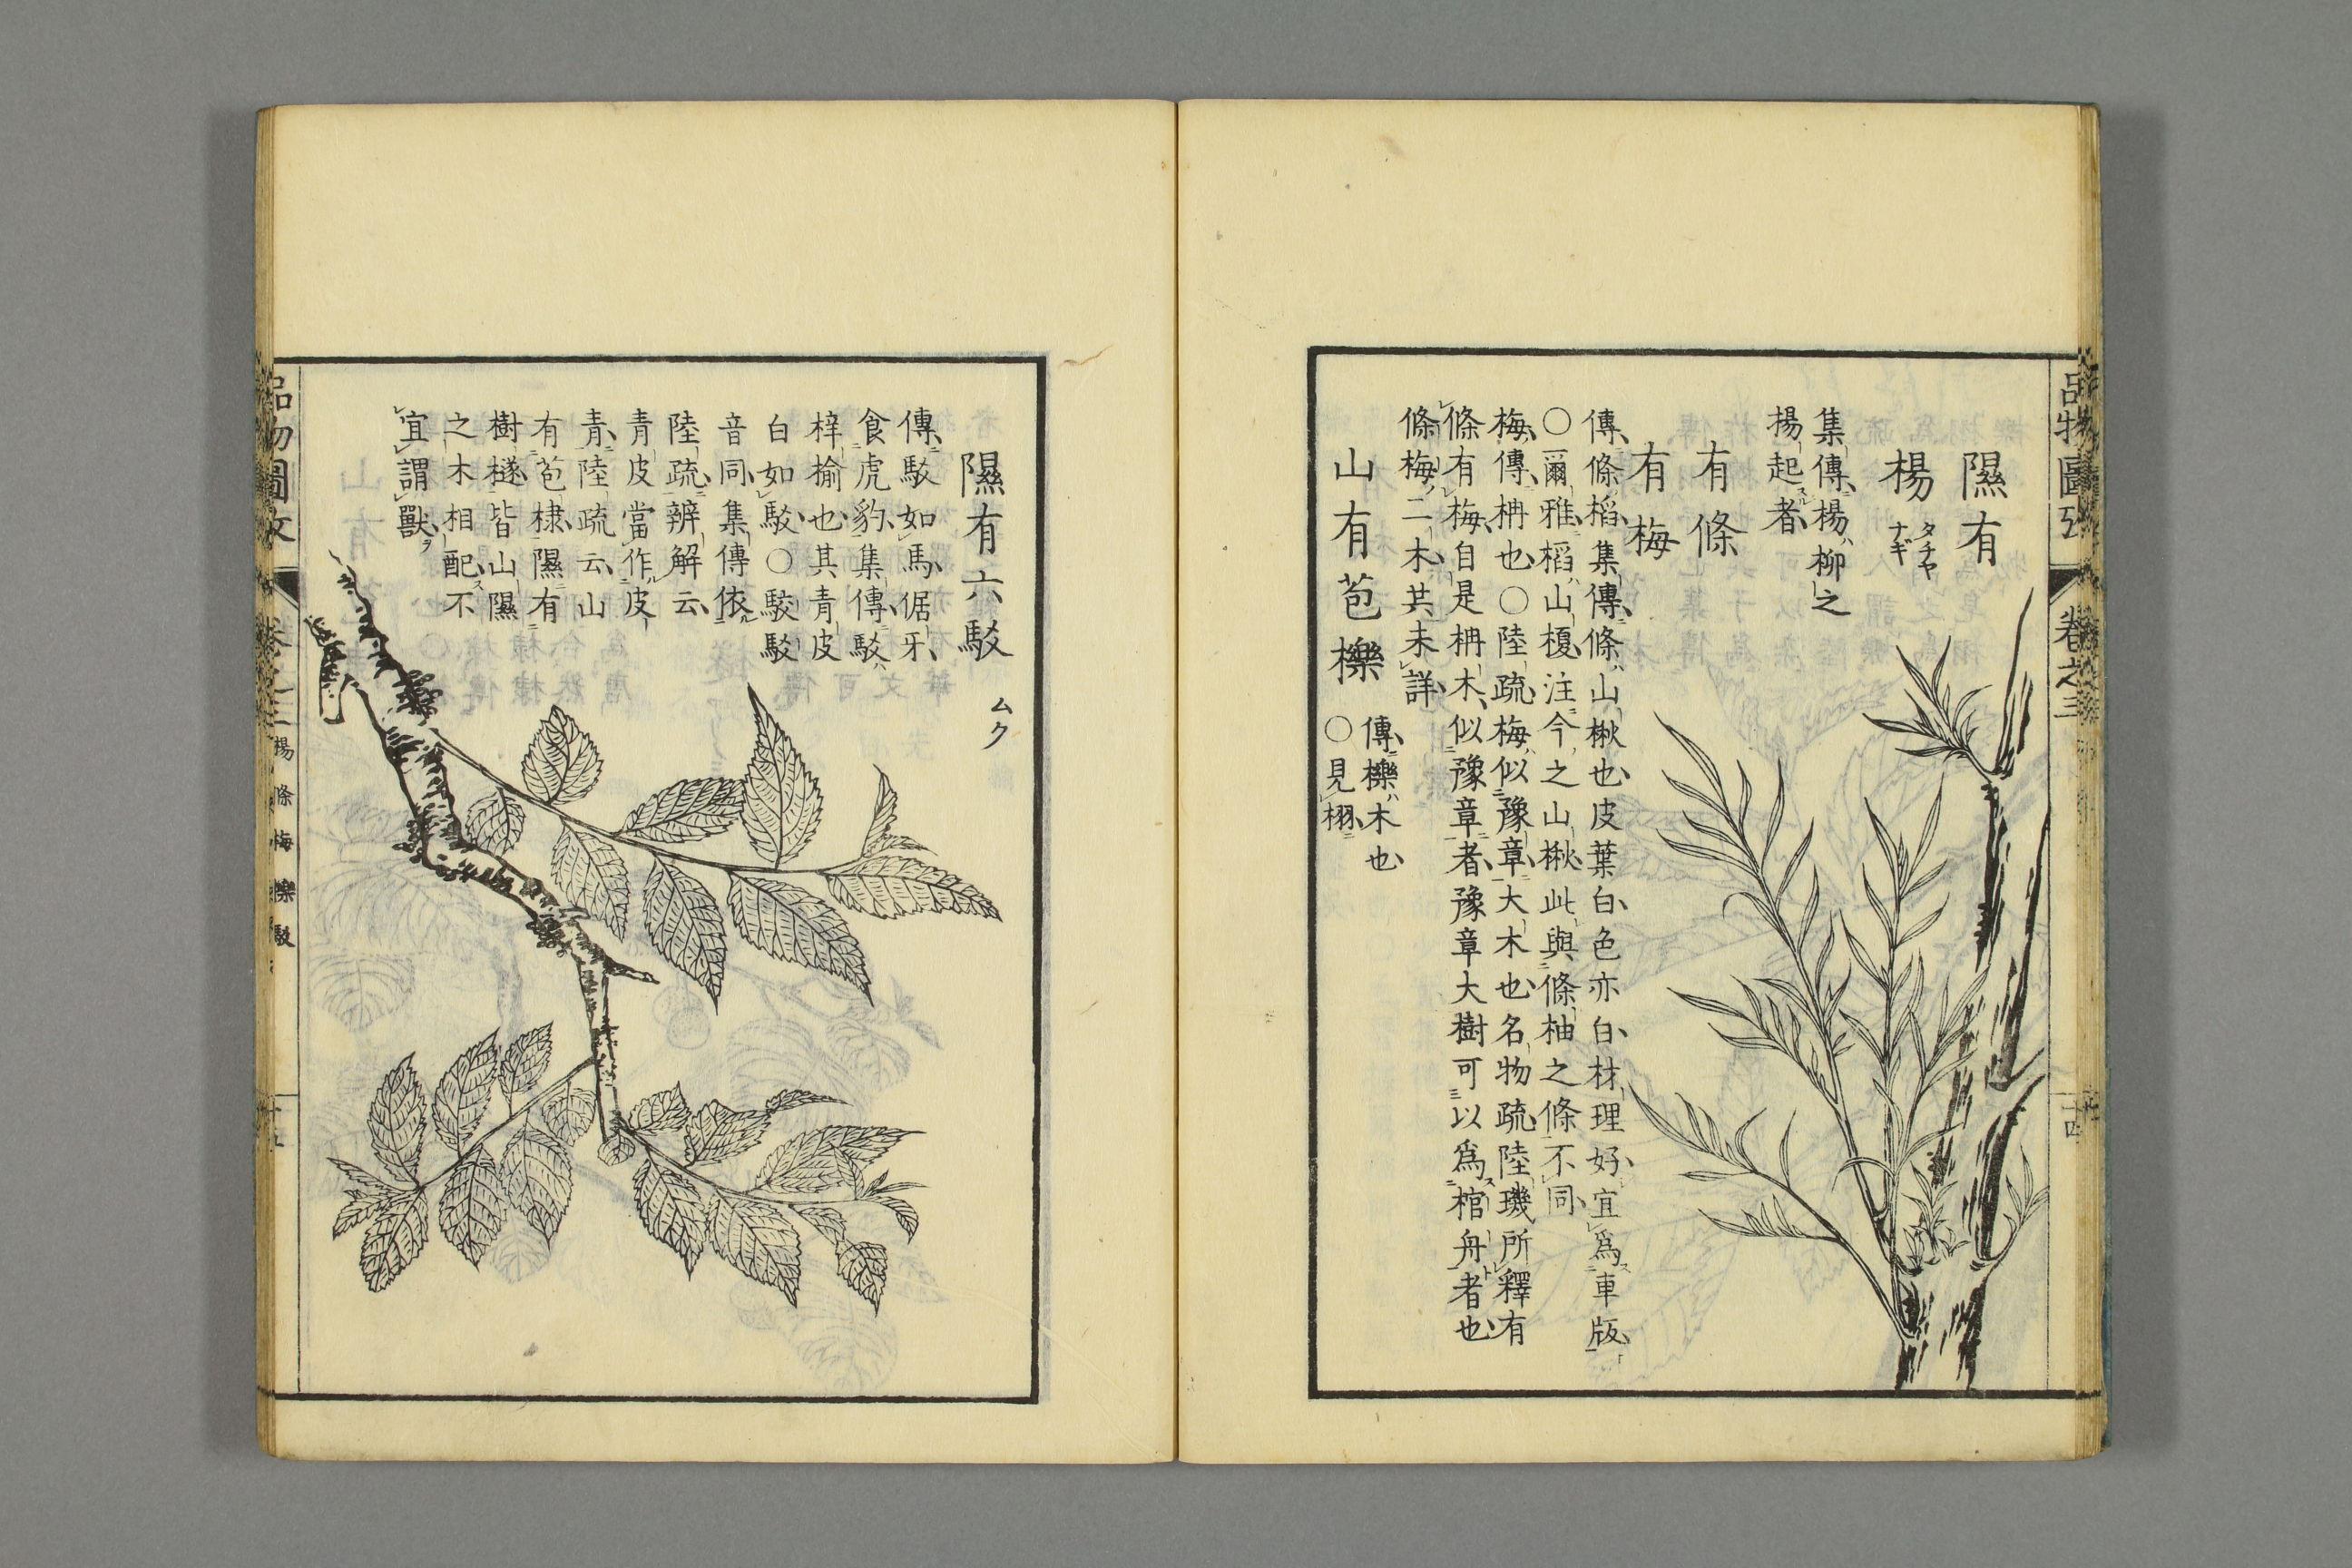 隰有
楊 タチヤナギ
集傳、楊、柳之
揚起者、
有條
有梅
傳、條、稻、集傳、條、山楸也、皮葉白、色亦白、材理好、宜爲車版、
○爾雅、稻、山榎、注、今之山楸、此與條、柚之條不同
梅、傳、枏也、○陸疏、梅、似豫章、大木也、名物疏、陸璣所釋有
條有梅、自是枏木、似豫章者、豫章大樹可以爲棺舟者也、
條梅二木、共未詳、
山有苞櫟
傳、櫟、木也、
○見栩、
品物圖攷
卷之三
十四
隰有六駁
ムク
傳、駁如馬、倨牙、
食虎豹、集傳、駁、
梓榆也、其青皮
白如駁、○駮駁
音同、集傳依
陸疏、辨解云、
青皮當作皮
青、陸疏云、山
有苞棣、隰有
樹檖、皆山隰
之木相配、不
宜謂獸
品物圖攷
卷之三
楊 條 梅 櫟 駁
十五